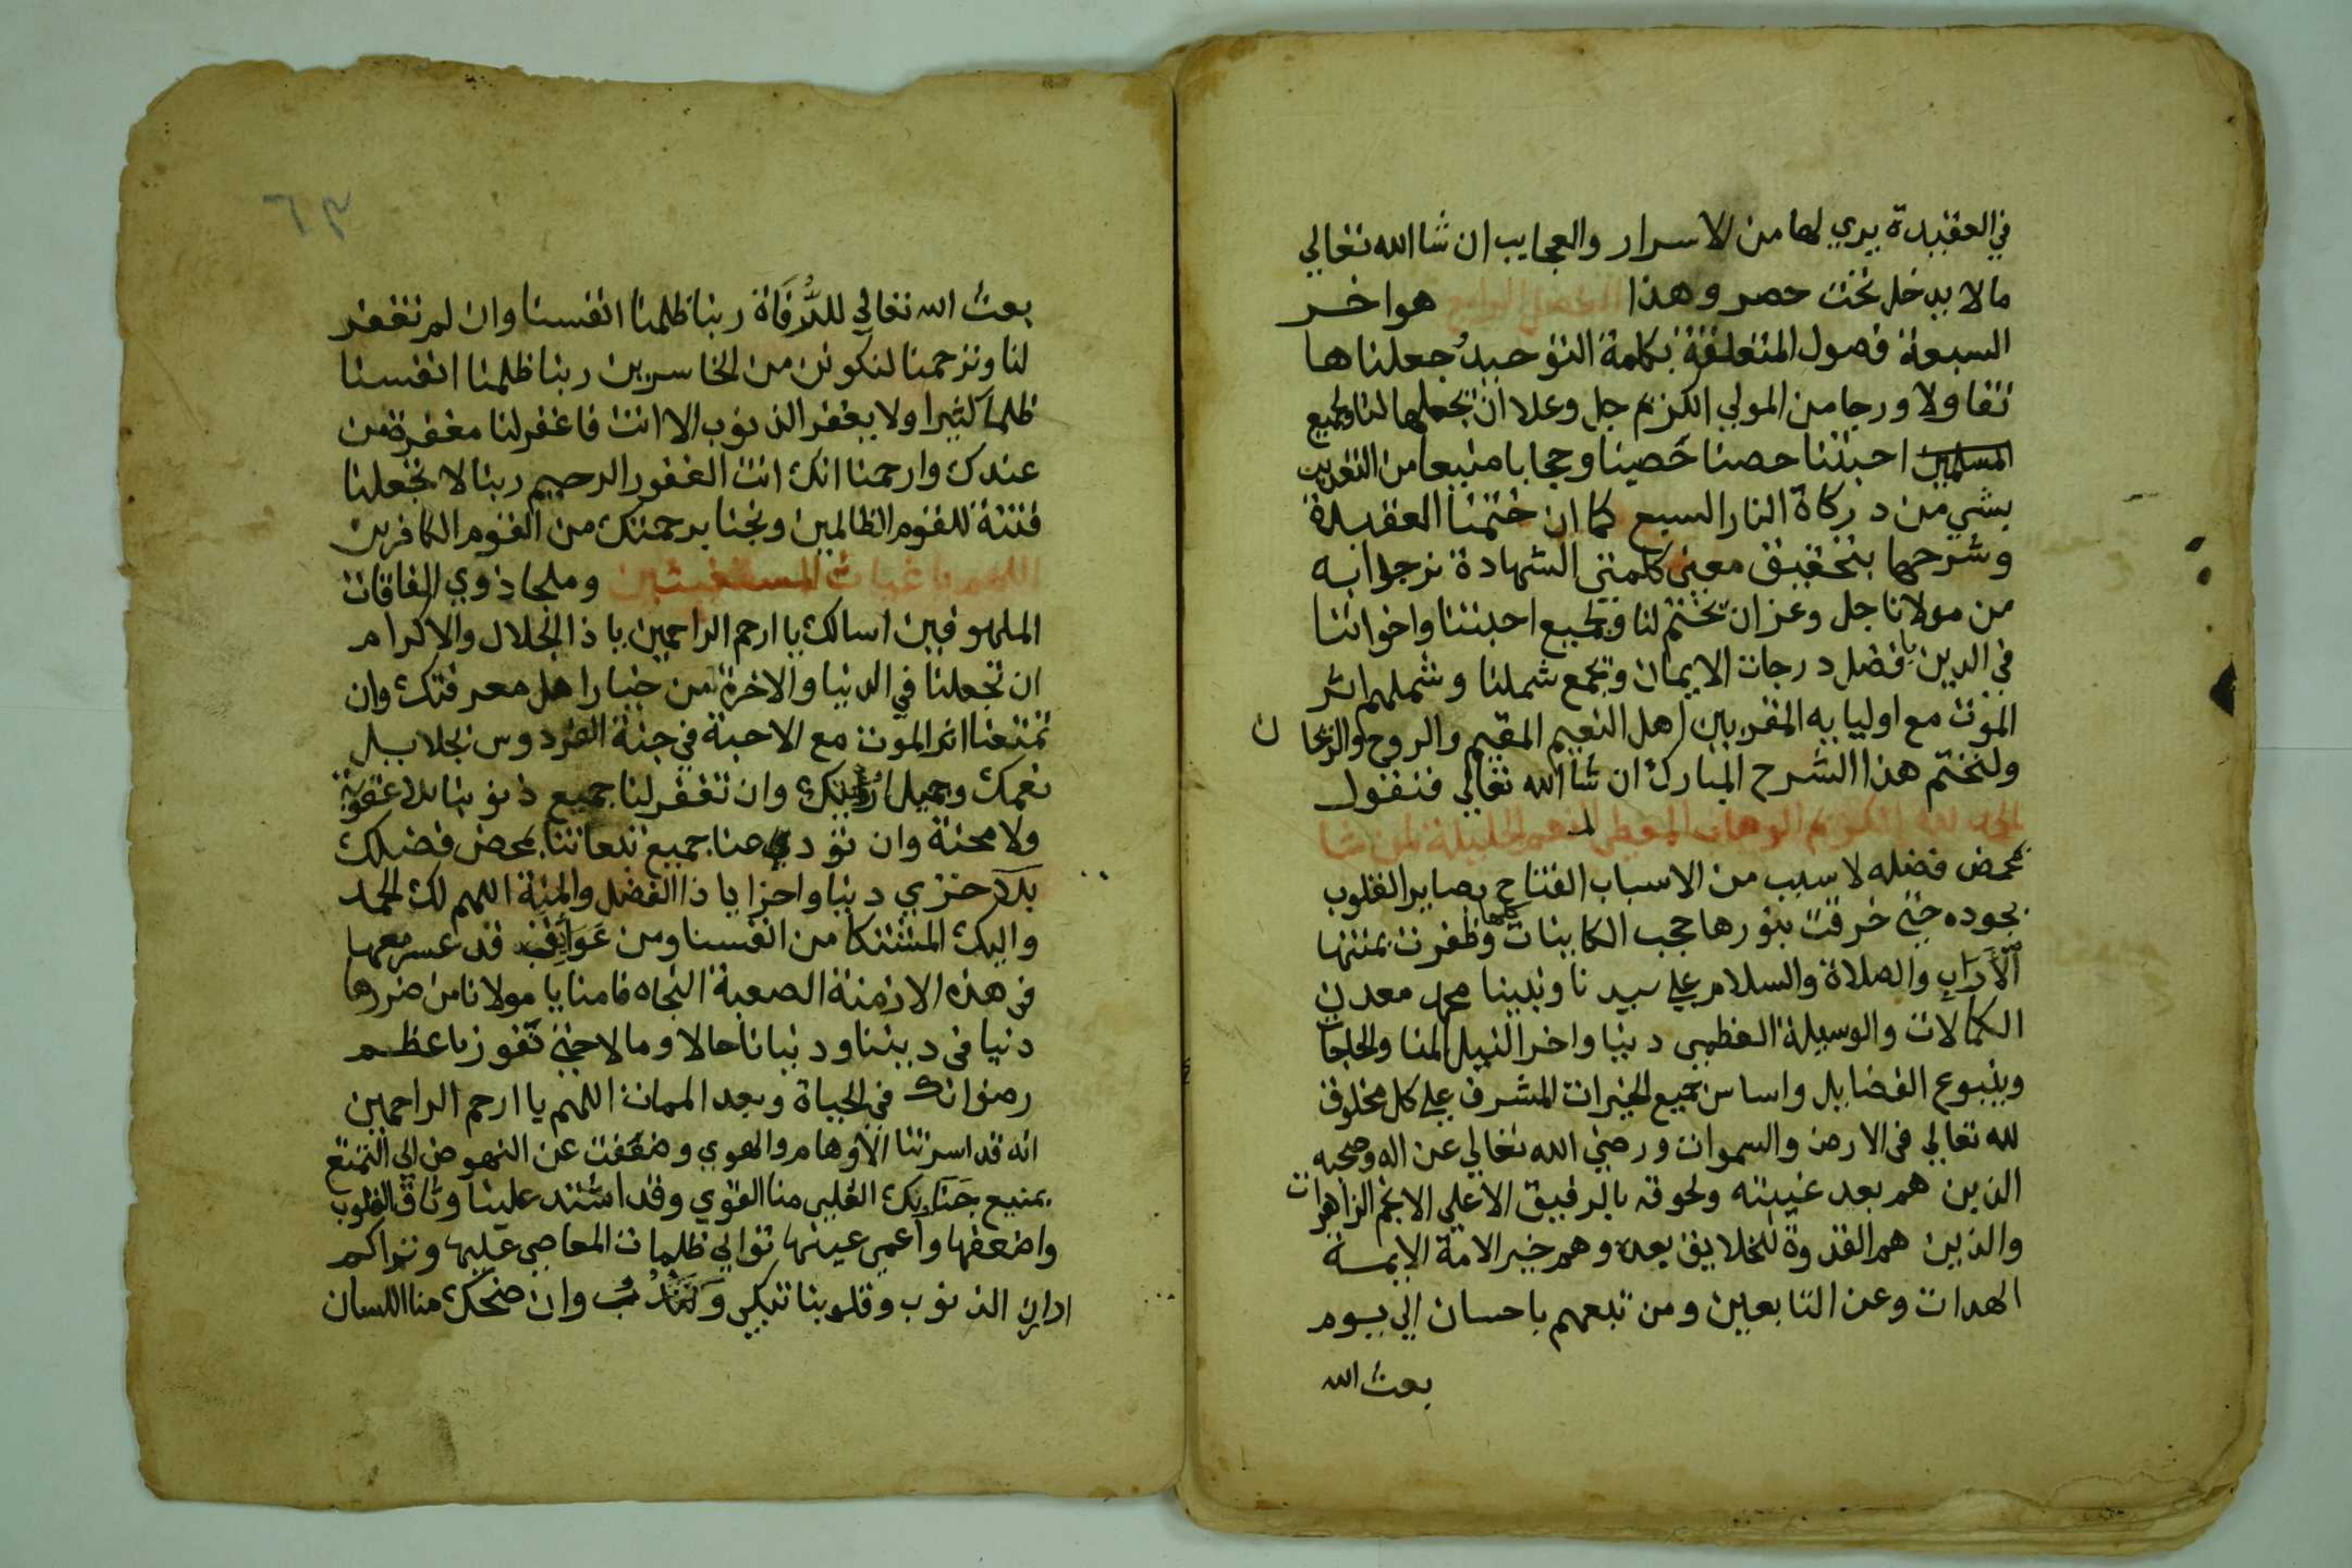 في العقيدة يري لها من الاسرار والعجايب ان شا الله تعالي
ما لا يدخل تحت حصر وهذا الفصل الرابع هو اخر
السبعة فصول المتعلقة بكلمة التوحيد جعلناها
تفاولا ورجا من المولي الكريم جل وعلا ان يجعلها لنا ولجميع
المسلمين احبتنا حصنا حصينا وحجابا منيعا من التعذيب
بشي من دركاة النار السبع كما ان ختمنا العقيدة
وشرحها بتحقيق معني كلمتي الشهادة نرجوا به
من مولانا جل وعز ان يختم لنا ولجميع احبتنا واخواننا
في الدين بافضل درجات الايمان ويجمع شملنا وشملهم اثر
الموت مع اوليايه المقربين اهل النعيم المقيم والروح والريحان
ولنختم هذا الشرح المبارك ان شا الله تعالي فنقول
الحمد لله الكريم الوهاب المعطي النعم الجليلة لمن شا
بمحض فضله لا سبب من الاسباب الفتاح بصاير القلوب
بجوده حتي خرقت بنورها حجب الكاينات كلها وظفرت بمنتها
الاراب والصلاة والسلام علي سيدنا ونبينا محمد معدن
الكمالات والوسيلة العظمي دنيا واخرا لنيل المنا والحاجات
وينبوع الفضايل واساس جميع الخيرات المشرف علي كل مخلوق
لله تعالي في الارض والسموات ورضي الله تعالي عن اله وصحبه
الذين هم بعد غيبته ولحوقه بالرفيق الاعلي الانجم الزاهرات
والذين هم القدوة للخلايق بعده وهم خير الامة الايمة
الهدات وعن التابعين ومن تبعهم باحسان الي يوم
بعث الله
٦٣
بعث الله تعالي للرفاة ربنا ظلمنا انفسنا وان لم تغفر
لنا وترحمنا لنكونن من الخاسرين ربنا ظلمنا انفسنا
ظلما كثيرا ولا يغفر الذنوب الا انت فاغفر لنا مغفرة من
عندك وارحمنا انك انت الغفور الرحيم ربنا لا تجعلنا
فتنة للقوم الظالمين ونجنا برحمتك من القوم الكافرين
اللهم يا غياث المستغيثين وملجا ذوي الفاقات
الملهوفين اسالك يا ارحم الراحمين يا ذا الجلال والاكرام
ان تجعلنا في الدنيا والاخرة من خيار اهل معرفتك وان
تمتعنا اثر الموت مع الاحبة في جنة الفردوس بجلايل
نعمك وجميل رؤيتك وان تغفر لنا جميع ذنوبنا بلا عقوبة
ولا محنة وان تؤدي عنا جميع تبعاتنا بمحض فضلك
بلا خزي دنيا واخرا يا ذا الفضل والمنة اللهم لك الحمد
واليك المشتكا من انفسنا ومن عوايق قد عسر معها
في هذه الازمنة الصعبة النجاه فامنا يا مولانا من ضررها
دنيا في ديننا ودنيانا حالا ومالا حتي نفوز باعظم
رضوانك في الحياة وبعد الممات اللهم يا ارحم الراحمين
انه قد اسرتنا الاوهام والهوي وضعفت عن النهوض الي التمتع
بمنيع جنابك العلي منا القوي وقد اشتد علينا وثاق القلوب
واضعفها واعمي عينها توالي ظلمات المعاصي عليها وتراكم
ادران الذنوب وقلوبنا تبكي وتندب وان ضحك منا اللسان